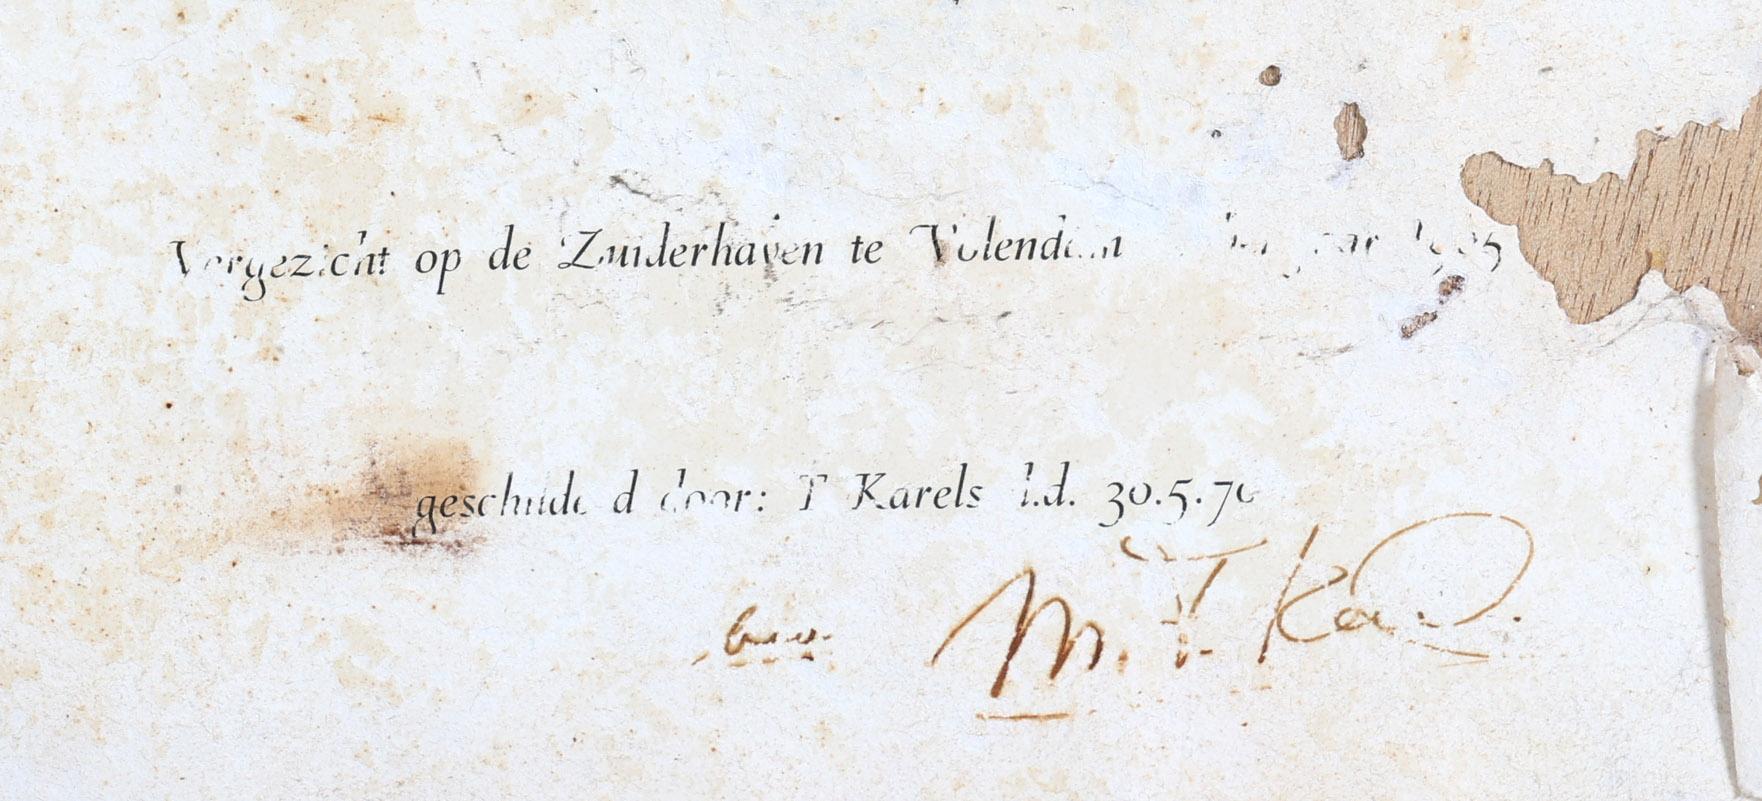 Vergezicht op de Zuiderhaven te Volendam jaar
geschilderd door: T Karels d.d. 30.5.70
M. T. Karels.